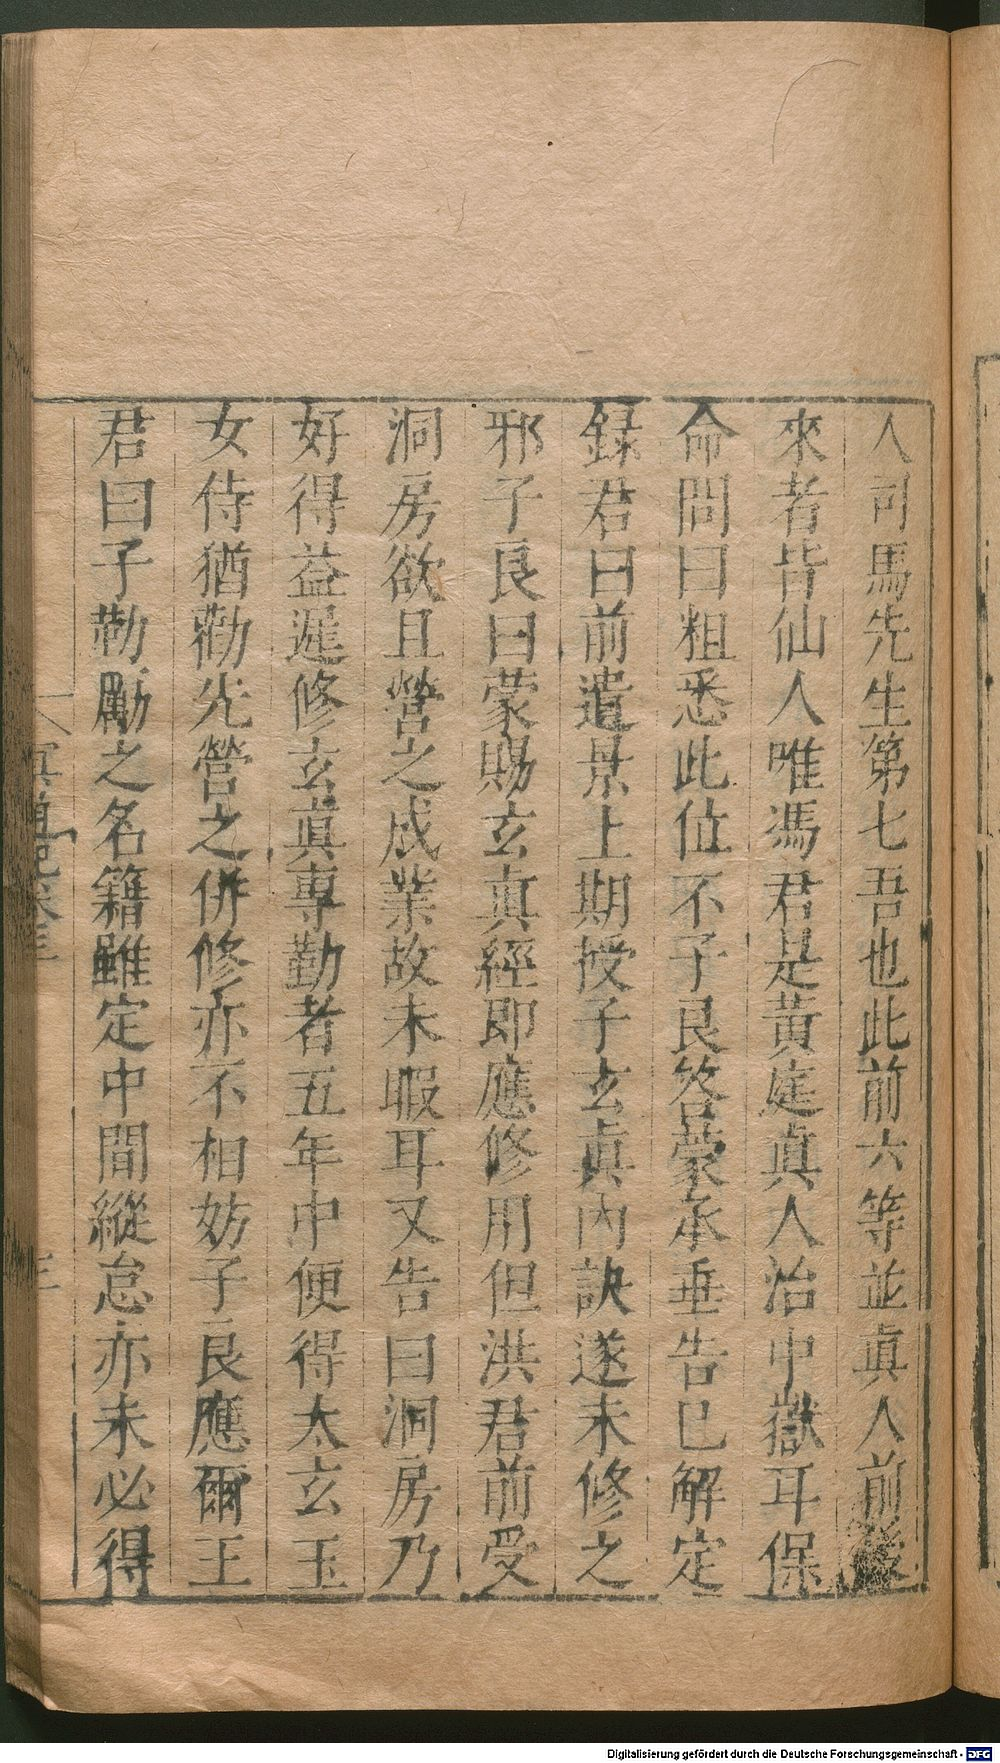 人司馬先生第七吾也此前六等並眞人前後
來者皆仙人唯馮君是黃庭眞人治中嶽耳保
命問曰粗悉此位不子良答蒙承垂告已解定
録君曰前遣景上期授子玄眞內訣遂未修之
邪子良曰蒙賜玄眞經即應修用但洪君前受
洞房欲且營之成業故未暇耳又告曰洞房乃
好得益遲修玄眞專勤者五年中便得太玄玉
女侍猶勸先營之併修亦不相妨子良應爾王
君曰子勤勵之名籍雖定中間縱怠亦未必得
冥通記卷三
三
Digitalisierung gefördert durch die Deutsche Forschungsgemeinschaft - DFG